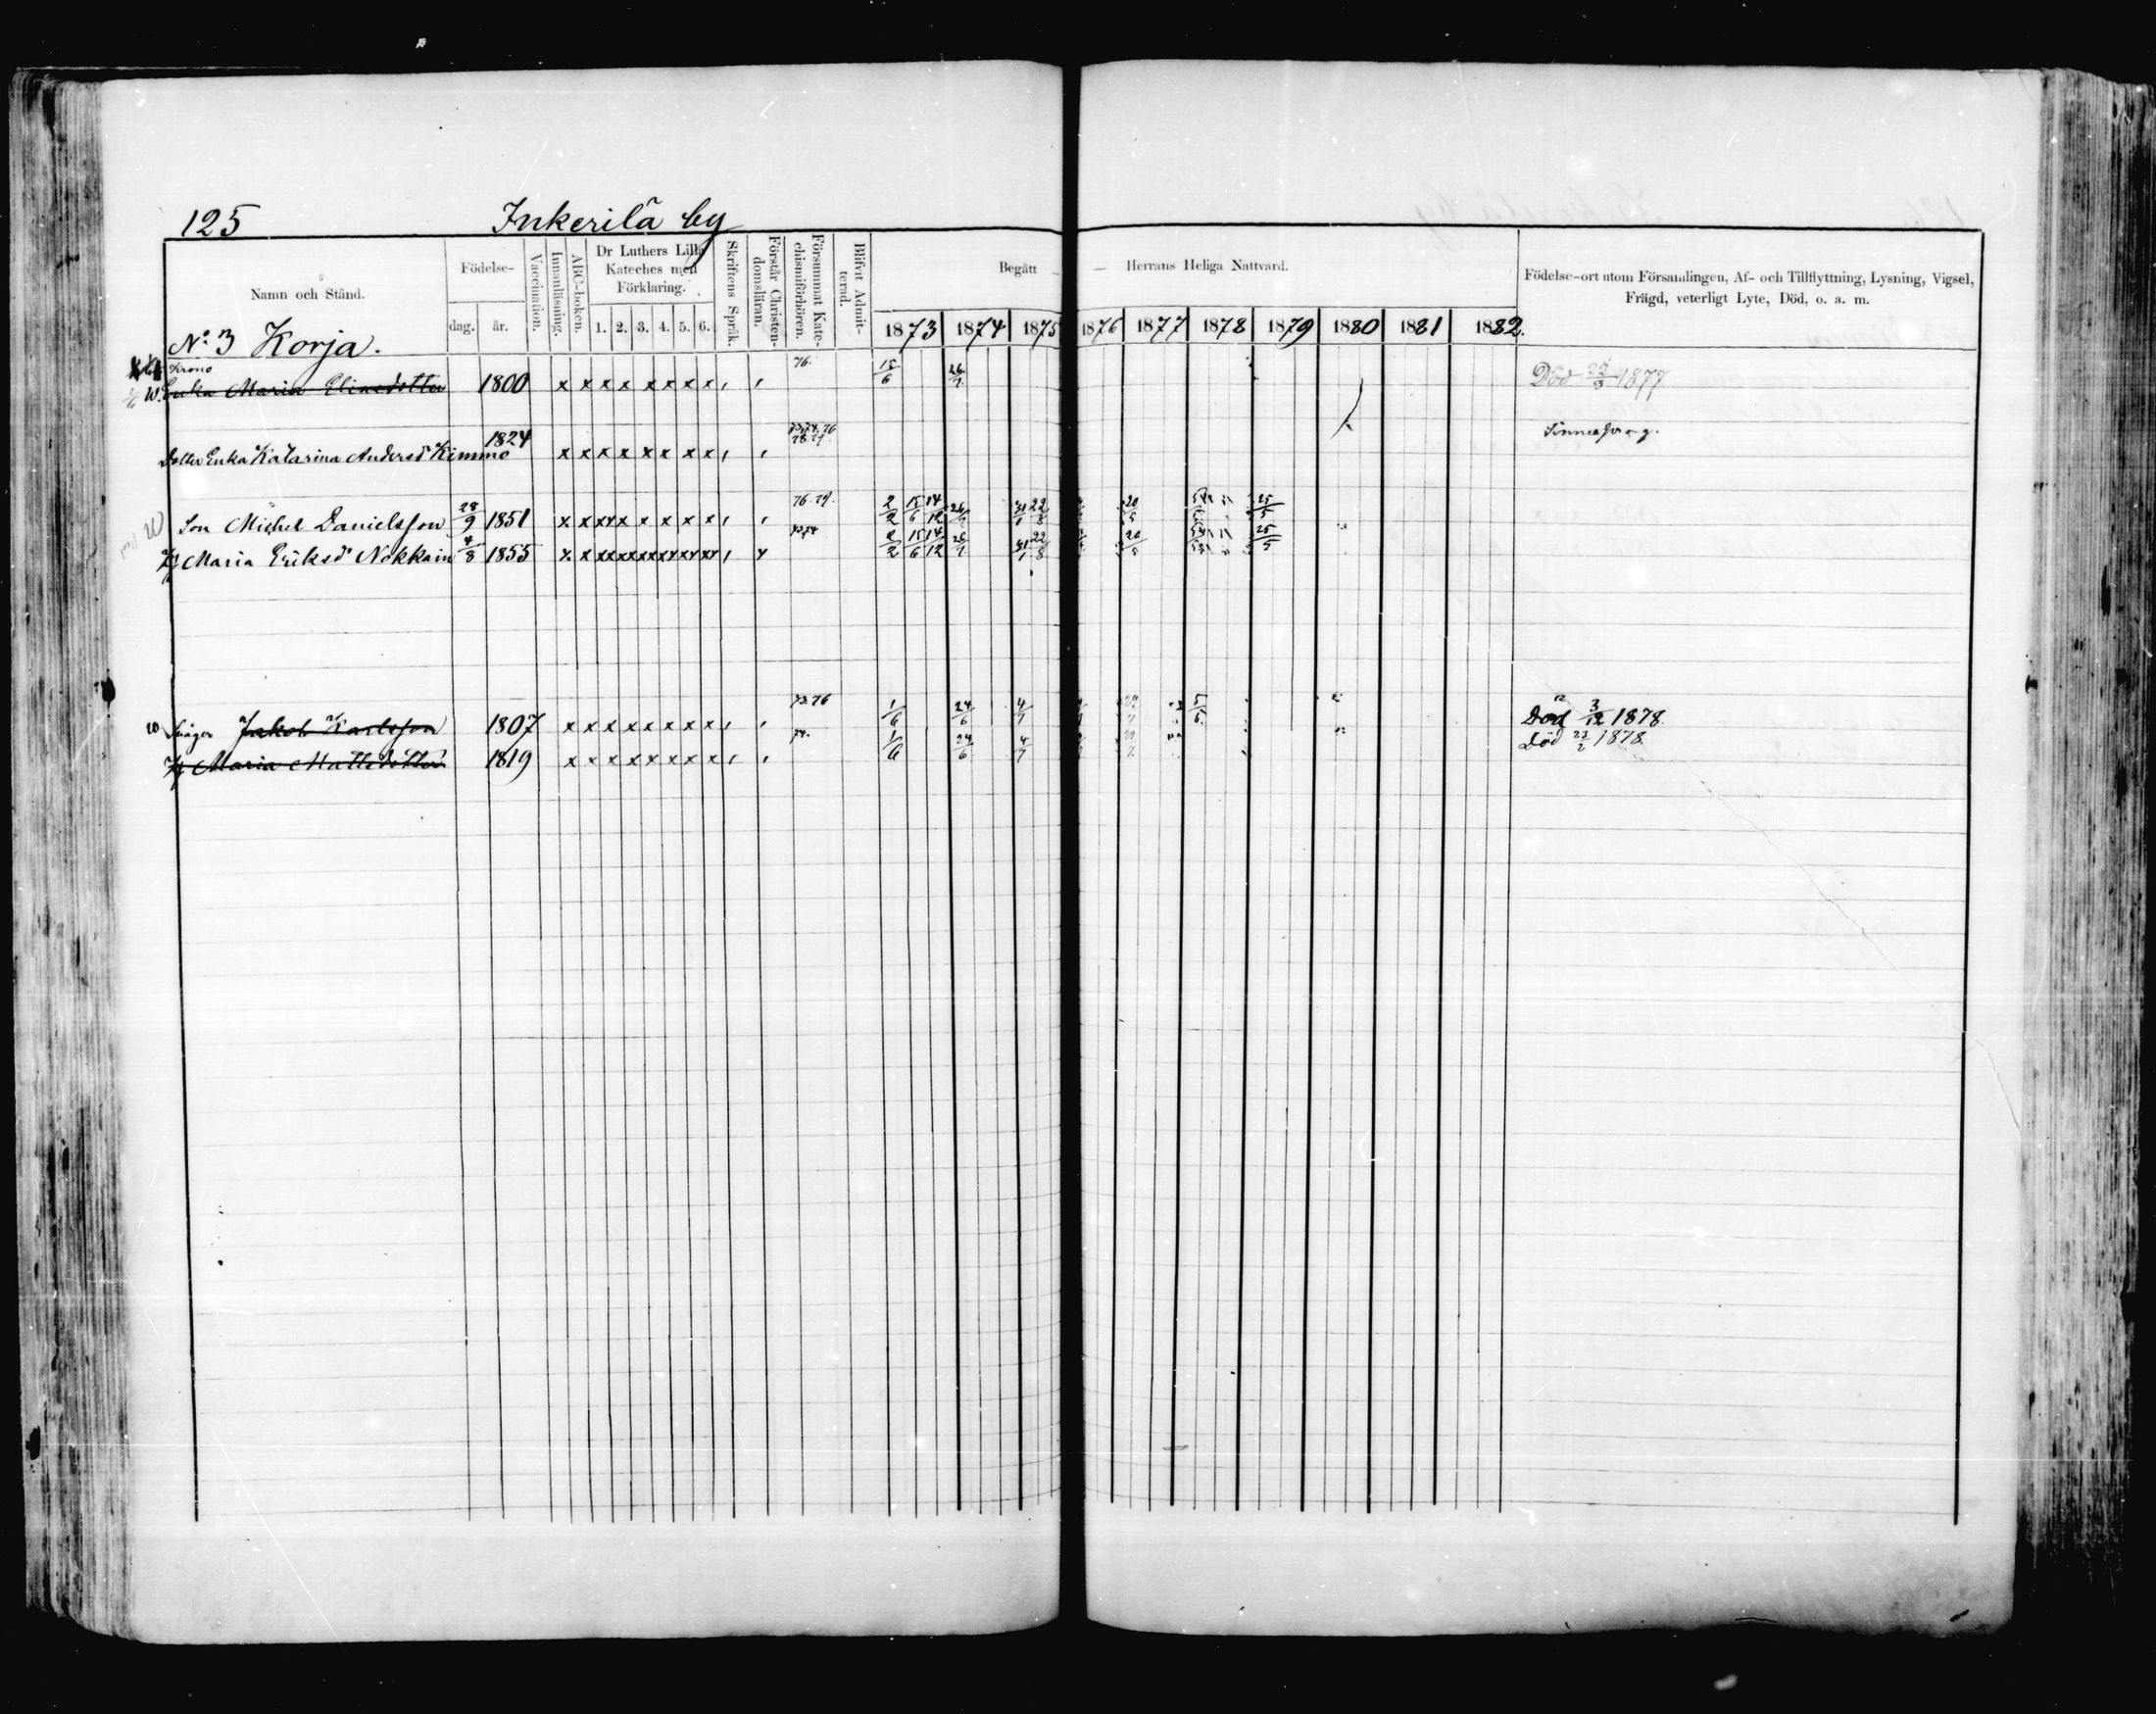 125 Inkerilä by
Namn och Stånd.
Födelse-
dag. år.
Vaccination.
Innanläsning.
ABC-boken.
Dr Luthers Lilla
Kateches med
Förklaring.
1. 2. 3. 4. 5. 6.
Skriftens Språk.
Förstår Christen-
domsläran.
Försummat Kate-
chismiförhören.
Blifvit Admit-
terad.
Begått Herrans Heliga Nattvard.
1873 1874 1875 1876 1877 1878 1879 1880 1881 1882.
Födelse-ort utom Församlingen, Af- och Tillflyttning, Lysning, Vigsel,
Frägd, veterligt Lyte, Död, o. a. m.
No 3 Korja.
Maria 1800 x x x x x x x x 76. 15/6 26/7 Död 22/3 1877
Dotter Katarina Andersdr Kimmo 1824 x x x x x x x x
Son Michel Danielsson 28/9 1851 x x x x x x x x 2/2 15/6 14/12 31/1 22/8 20/5 25/5
Maria Eriksdr 1855 2/2 15/6 14/12 31/1 22/8 20/5 25/5
Jakob Karlsson 1807 x x x x x x x x 73.76 1/6 24/6 4/7 5/5 Död 3/12 1878.
Maria Mattsdotter 1819 x x x x x x x x 74. 1/6 24/6 4/7 Död 23/2 1878.